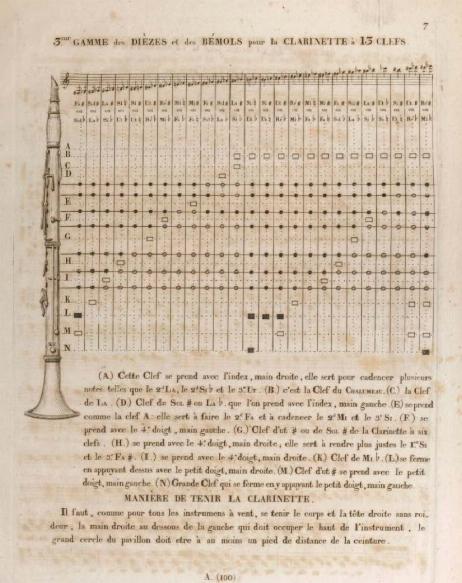 7
3.me GAMME des DIÈZES et des BÉMOLS pour la CLARINETTE à 13 CLEFS
A
B
C
D
E
F
G
H
I
K
L
M
N
(A) Cette Clef se prend avec l'index, main droite, elle sert pour cadencer plusieurs
notes telles que le 2.d LA, le 2.d SI ♭ et le 3.e UT. (B) c'est la Clef du CHALUMEAU. (C) la Clef
de LA. (D) Clef de SOL # ou LA ♭ que l'on prend avec l'index, main gauche. (E) se prend
comme la clef A. elle sert à faire le 2.d FA et à cadencer le 2.d MI et le 3.e SI. (F) se
prend avec le 4.e doigt, main gauche. (G) Clef d'ut # ou de SOL # de la Clarinette à six
clefs. (H.) se prend avec le 4.e doigt, main droite; elle sert à rendre plus justes le 1.er SI
et le 2.e FA #. (I.) se prend avec le 4.e doigt, main droite. (K) Clef de MI ♭. (L) se ferme
en appuyant dessus avec le petit doigt, main droite. (M.) Clef d'ut # se prend avec le petit
doigt, main gauche. (N) Grande Clef qui se ferme en y appuyant le petit doigt, main gauche.
MANIÈRE DE TENIR LA CLARINETTE.
Il faut, comme pour tous les instrumens à vent, se tenir le corps et la tête droite sans roi-
deur, la main droite au dessous de la gauche qui doit occuper le haut de l'instrument, le
grand cercle du pavillon doit etre à au moins un pied de distance de la ceinture.
A. (100)